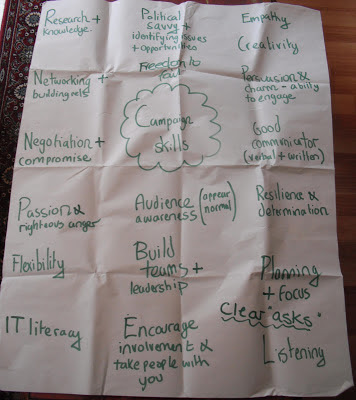 Research +
knowledge.
Political
savvy +
identifying issues
+ opportunities
Empathy
Creativity
Freedom to
fail
Networking +
building rels
Persuasion &
charm - ability
to engage
Campaign
skills
Negotiation +
compromise
Good
communicator
(verbal + written)
Passion &
righteous anger
Audience
awareness (appear
normal)
Resilience &
determination
Flexibility
Build
teams +
leadership
Planning
+ focus
Clear "asks"
IT literacy
Encourage
involvement &
take people with
you
Listening